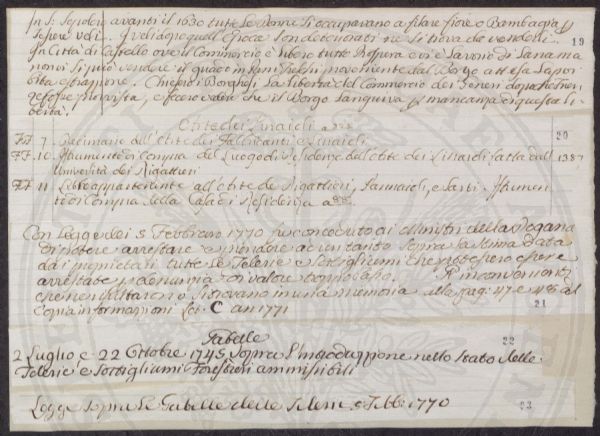 In S: Sepolcro avanti il 1630 tutte le Donne si occupavano a filare fiore o Bambagia p
sepere veli. I veli dopo quell'epoca son deteriorati ne si trova da venderne. 19
In Città di Castello ove il Commercio è libero tutto Prospera e vi è lavoro di Lana ma
non vi si può vendere il guado in Pani freschi proveniente dal Borgo attesa la proi
bita estrazione. Chiesero i Borghesi la libertà del Commercio dei Generi dopo che ne
gesse provvista, e fecero vedere che il Borgo languiva p mancanza di questa li
bertà.
Arte dei Linaioli
FF. 7. Decimario dell'Arte dei Fabbricanti e Linaioli. 20
FF. 10. Istrumento di Compra del Luogo di Residenza dell'Arte dei Linaioli fatta dall' 1387
Università dei Rigattieri
FF 11. Libro appartenente all'Arte de Rigattieri, Pannaioli, e Sarti. Istrumen
to di Compra della Casa di Residenza
Con Legge dei 5 Febbraio 1770 fu conceduto ai Ministri della Dogana
di potere arrestare e prendere ad un tanto sopra la stima data
da i proprietari tutte le Telerie e Sottigliumi che potessero essere
arrestate p denunzia di valore troppo basso. P inconvenienti
che ne risultarono si trovano in una memoria alla pag. 47 e 48 del
Copia informazioni Let. C an 1771 21
Gabelle 22
2 Luglio e 22 Ottobre 1745 Sopra l'Introduzione nello Stato delle
Telerie e Sottigliumi Forestieri ammissibili
Legge sopra le Gabelle delle Telerie 5 Febb: 1770 23